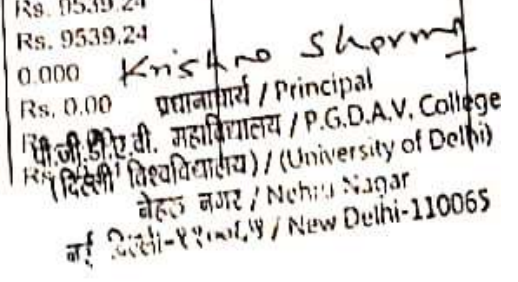 Rs. 9539.24
Rs. 9539.24
0.000
Krishna Sharma
Rs. 0.00
प्रधानाचार्य / Principal
पी.जी.डी.ए.वी. महाविद्यालय / P.G.D.A.V. College
(दिल्ली विश्वविद्यालय) / (University of Delhi)
नेहरू नगर / Nehru Nagar
नई दिल्ली-११००६५ / New Delhi-110065